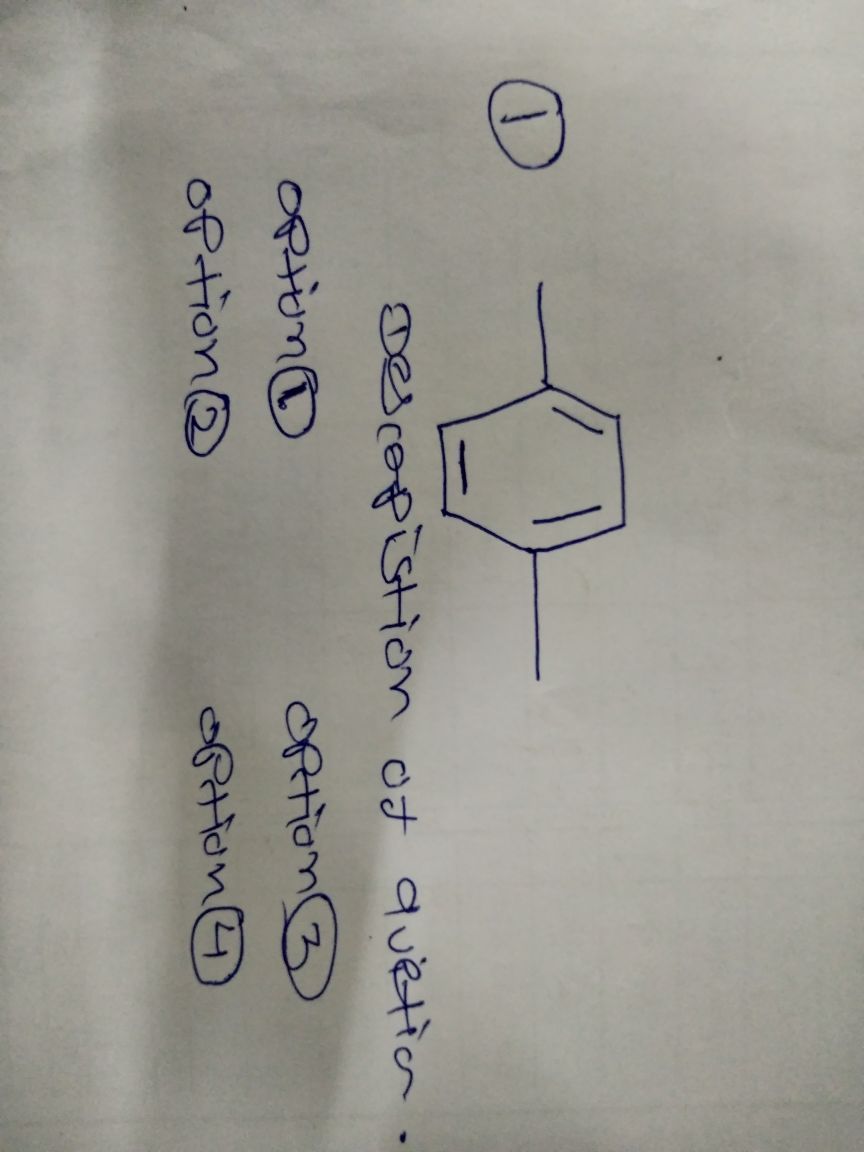 ①
Descropistion of quetion.
option ① option ③
option ② option ④